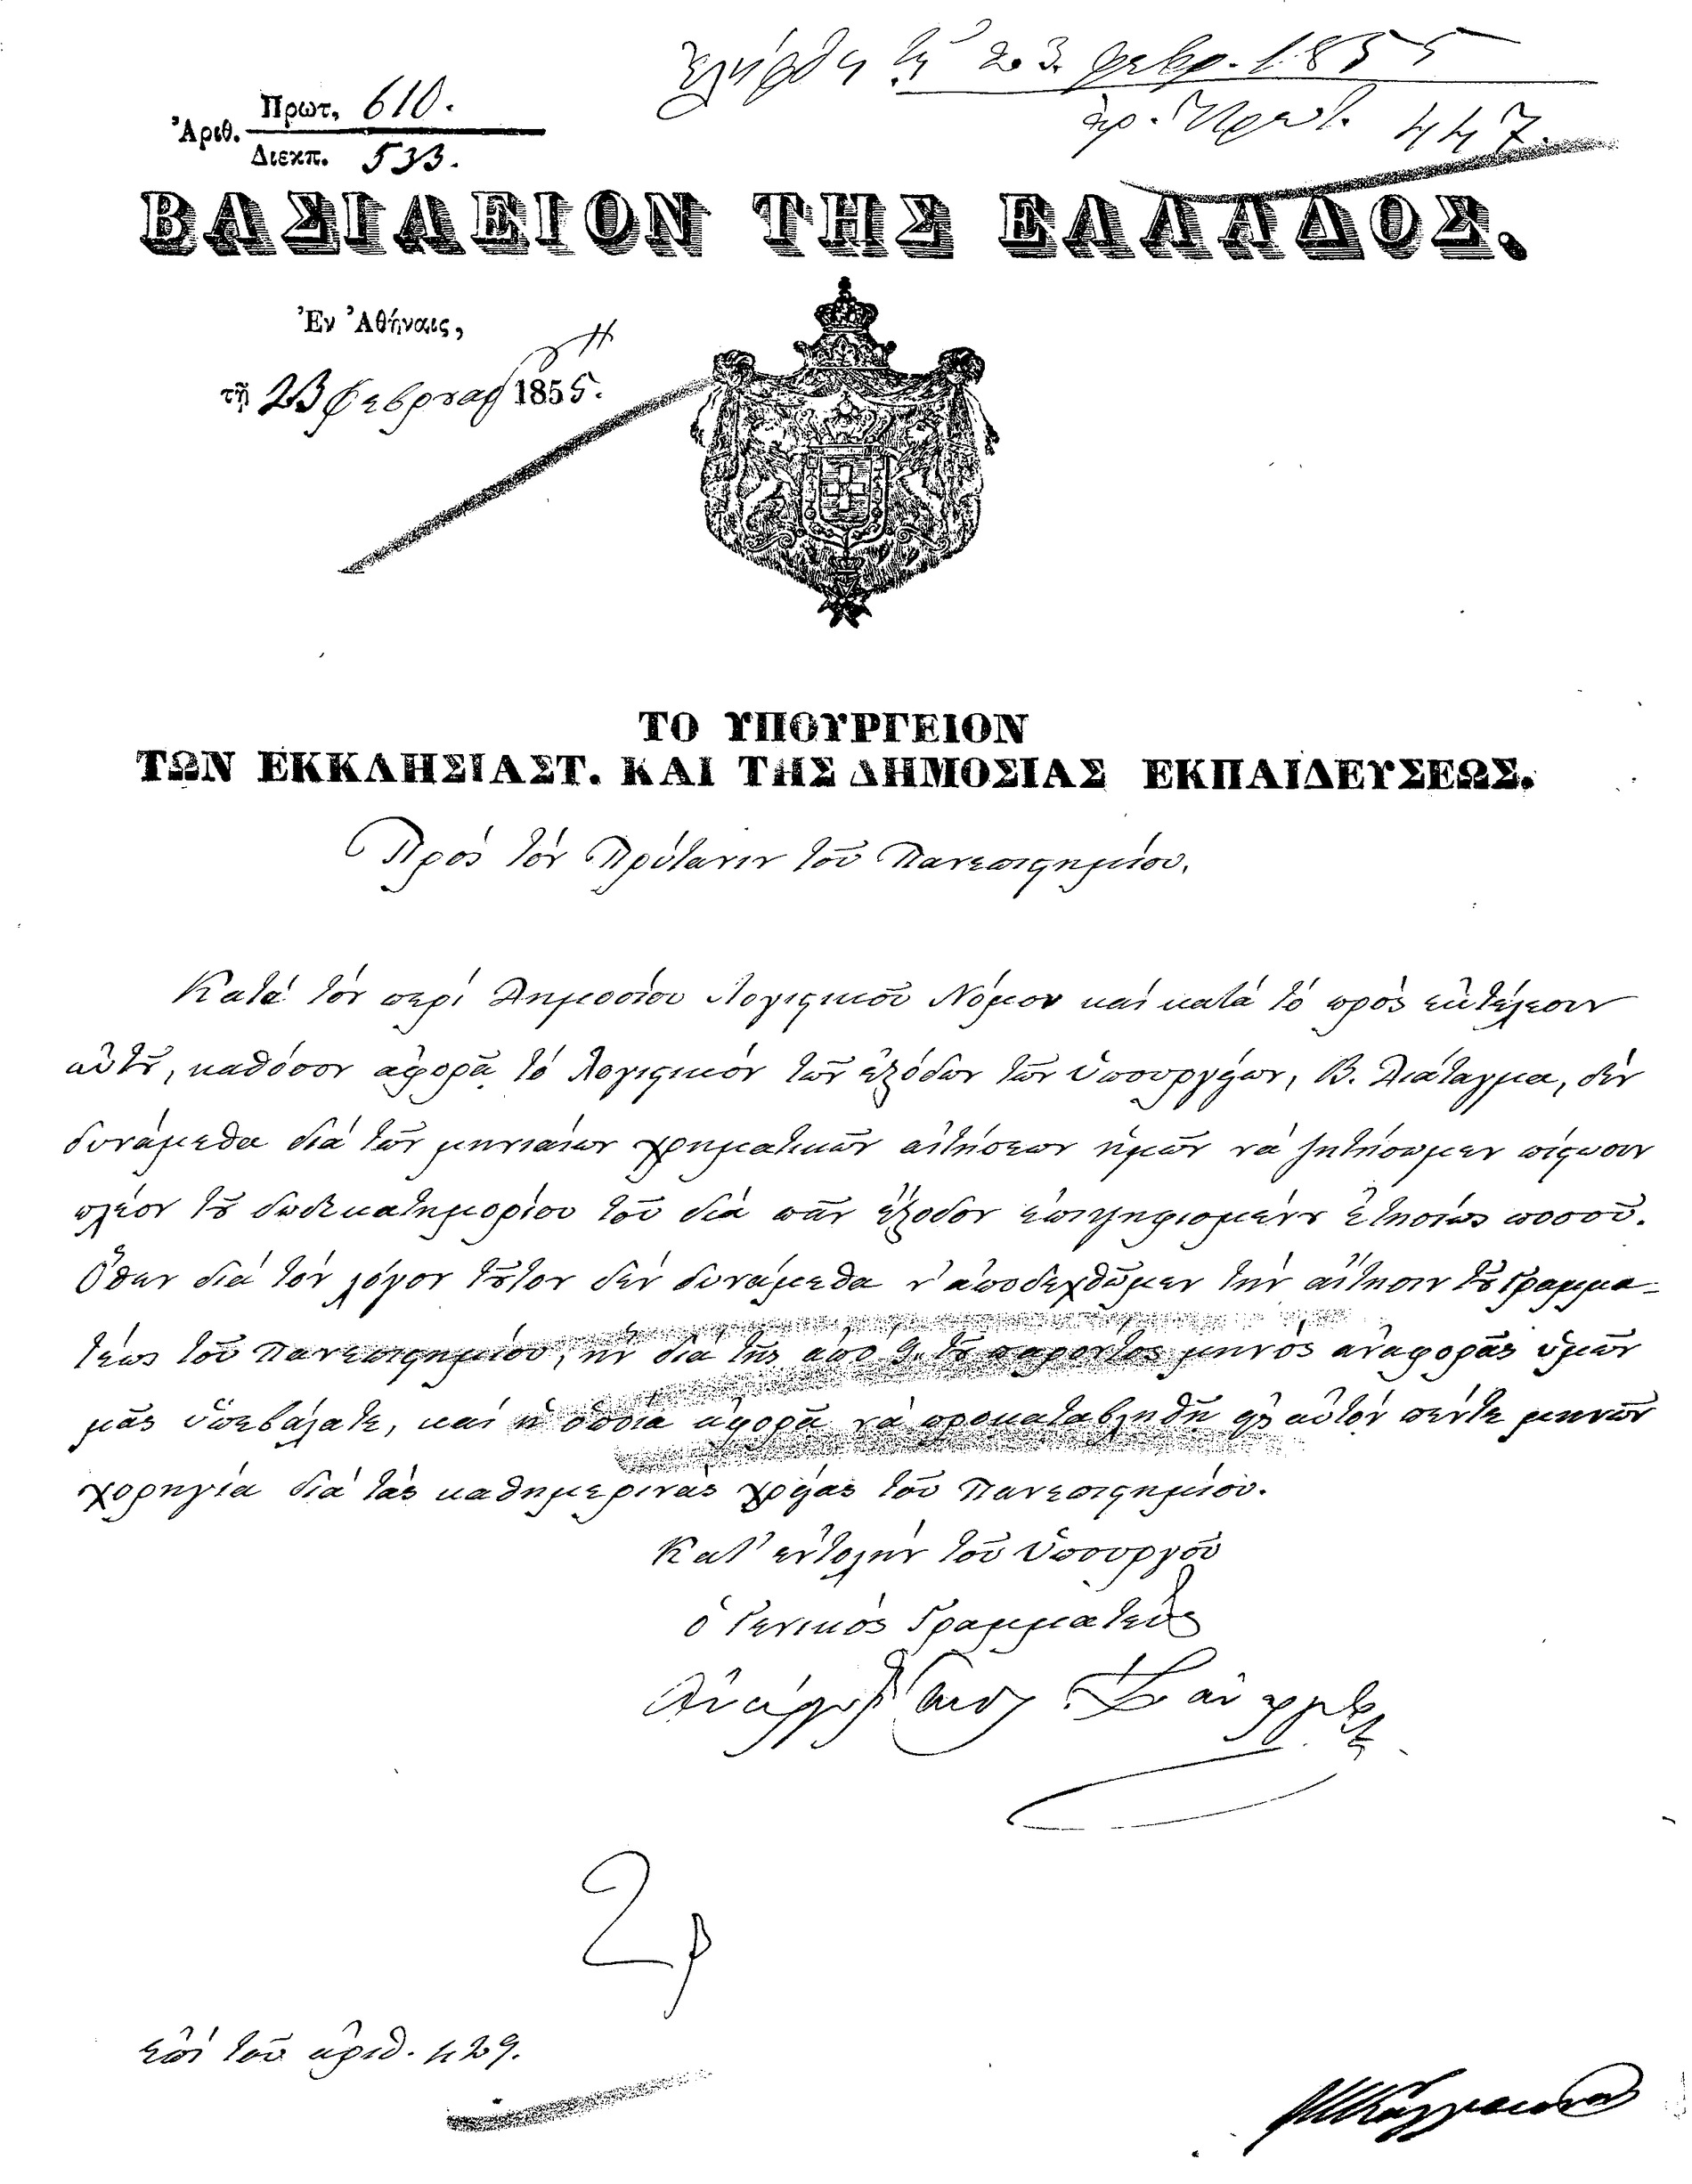 ἐλήφθη τῇ 23 φεβρ. 1855
ἀρ. Πρωτ. 447.
Ἀριθ. Πρωτ, 610.
Διεκπ. 533.
ΒΑΣΙΛΕΙΟΝ ΤΗΣ ΕΛΛΑΔΟΣ.
Ἐν Ἀθήναις,
τῇ 23 φεβρουαρ 1855.
ΤΟ ΥΠΟΥΡΓΕΙΟΝ
ΤΩΝ ΕΚΚΛΗΣΙΑΣΤ. ΚΑΙ ΤΗΣ ΔΗΜΟΣΙΑΣ ΕΚΠΑΙΔΕΥΣΕΩΣ.
Πρὸς τὸν Πρύτανιν τοῦ Πανεπιςημίου.
Κατὰ τὸν περὶ Δημοσίου Λογιςικοῦ Νόμον καὶ κατὰ τὸ πρὸς ἐκτέλεσιν
αὐτȣ͂, καθόσον ἀφορᾷ τὸ λογιςικὸν τῶν ἐξόδων τῶν ὑπουργείων, Β. Διάταγμα, δὲν
δυνάμεθα διὰ τῶν μηνιαίων χρηματικῶν αἰτήσεων ἡμῶν νὰ ζητήσωμεν πίςωσιν
πλέον τȣ͂ δωδεκατημορίου τοῦ διὰ πᾶν ἔξοδον ἐπιψηφισμένȣ ἐτησίως ποσοῦ.
Ὅθεν διὰ τὸν λόγον τȣ͂τον δὲν δυνάμεθα ν' ἀποδεχθῶμεν τὴν αἴτησιν τȣ͂ Γραμμα-
τέως τοῦ Πανεπιςημίου, ἣν διὰ τῆς ἀπὸ 9. τȣ͂ παρόντος μηνὸς ἀναφορᾶς ὑμῶν
μᾶς ὑπεβάλατε, καὶ ἡ ὁποία ἀφορᾷ νὰ προκαταβληθῇ εἰς αὐτὸν πέντε μηνῶν
χορηγία διὰ τὰς καθημερινὰς χρείας τοῦ Πανεπιςημίου.
Κατ' ἐντολὴν τοῦ Ὑπουργοῦ
ὁ Γενικὸς Γραμματεὺς
ἐπὶ τοῦ ἀριθ. 429.